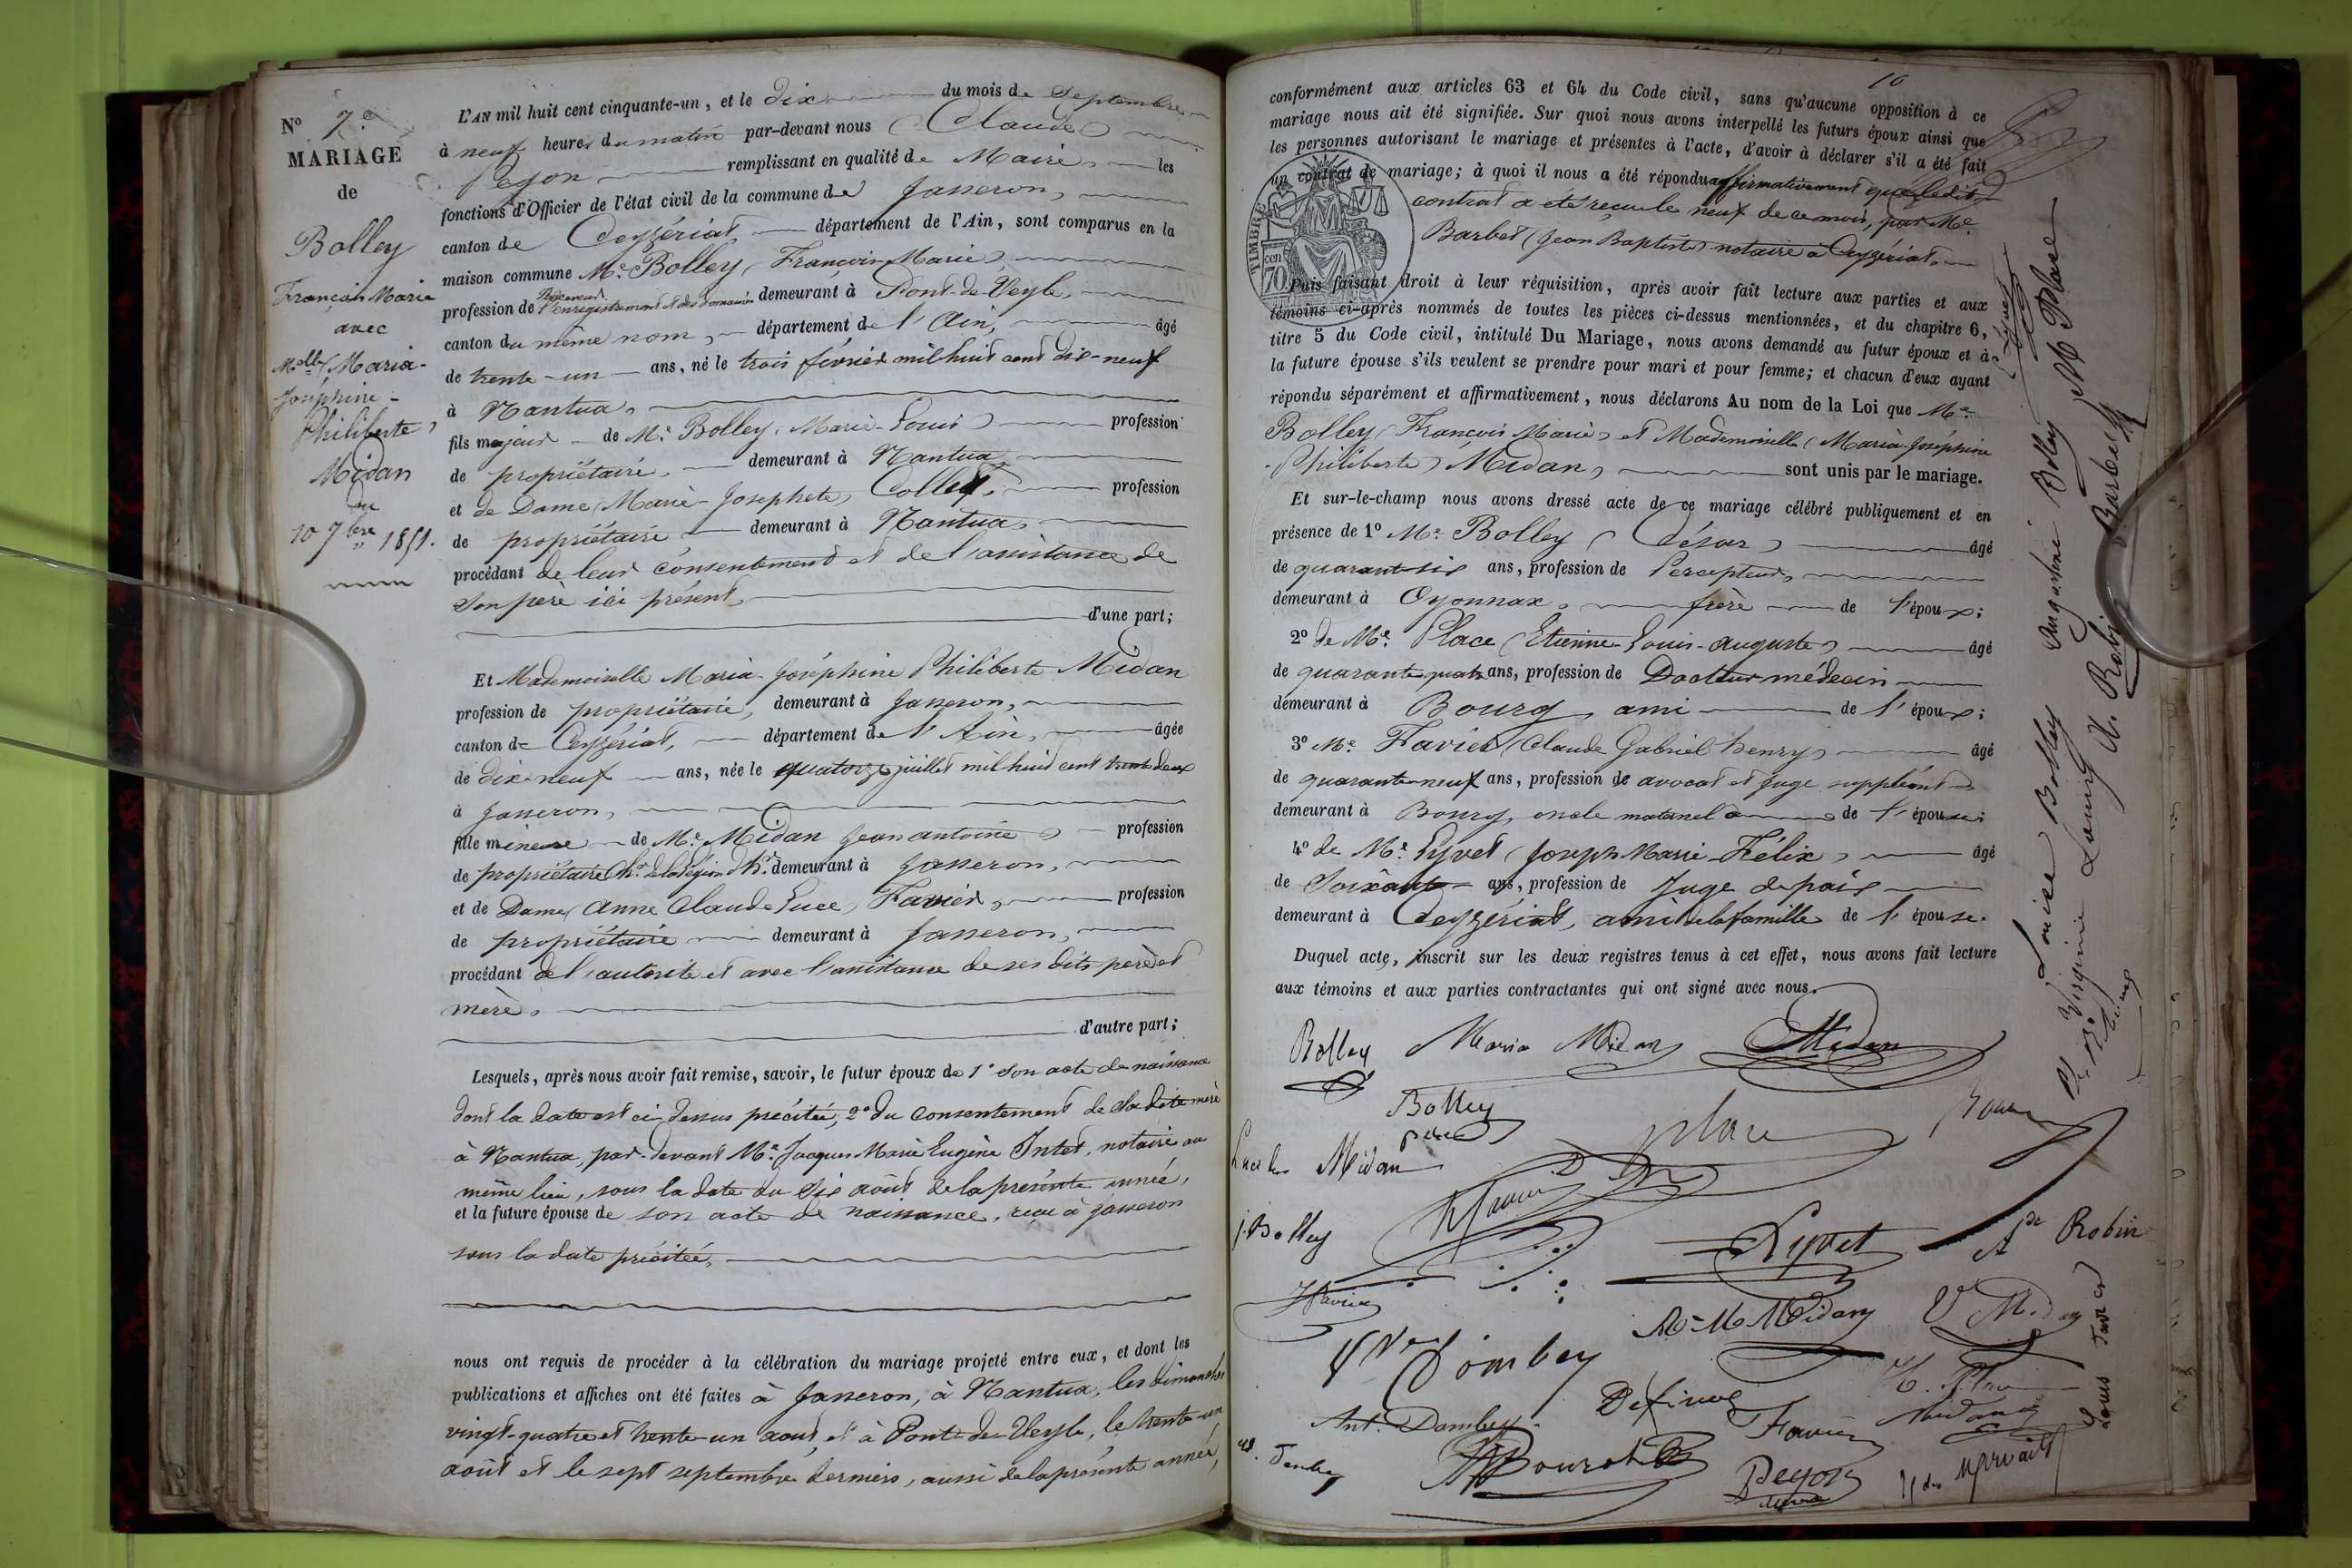 N° 7.
MARIAGE
de
Bolley
François Marie
avec
M.elle Maria-
Joséphine-
Philiberte,
Midan
du
10 7bre 1851.
L'AN mil huit cent cinquante-un, et le dix du mois de Septembre
à neuf heures du matin par-devant nous (Claude)
Peyon remplissant en qualité de Maire, les
fonctions d'Officier de l'état civil de la commune de Jasseron,
canton de Ceyzériat département de l'Ain, sont comparus en la
maison commune Mr. Bolley, (François Marie),
profession de Receveur de l'enregistrement et des domaines demeurant à Pont-de-Veyle,
canton du même nom, département de l'Ain, âgé
de trente-un ans, né le trois février mil huit cent dix-neuf
à Nantua,
fils majeur de Mr. Bolley, (Marie-Louis) profession
de propriétaire, demeurant à Nantua,
et de Dame (Marie-Josephete) Collet, profession
de propriétaire demeurant à Nantua,
procédant de leur consentement et de l'assistance de
son père ici présent,
d'une part;
Et Mademoiselle Maria-Joséphine Philiberte Midan
profession de propriétaire, demeurant à Jasseron,
canton de Ceyzériat, département de l'Ain, âgée
de dix-neuf ans, née le quatorze juillet mil huit cent trente deux
à Jasseron,
fille mineure de Mr. Midan Jean antoine profession
de propriétaire Ch.er de la légion d'h.r demeurant à Jasseron,
et de Dame (Anne Claude Luce) Favier, profession
de propriétaire demeurant à Jasseron,
procédant de l'autorité et avec l'assistance de ses dits père et
mère,
d'autre part;
Lesquels, après nous avoir fait remise, savoir, le futur époux de 1° son acte de naissance
dont la date est ci-dessus précitée, 2° du consentement de sa dite mère
à Nantua, par-devant Me. Jacques Marie Eugène Intet, notaire au
même lieu, sous la date du six août de la présente année,
et la future épouse de son acte de naissance, reçu à Jasseron
sous la date précitée,
nous ont requis de procéder à la célébration du mariage projeté entre eux, et dont les
publications et affiches ont été faites à Jasseron, à Nantua, les dimanches
vingt-quatre et trente-un août, et à Pont-de-Veyle, le trente-un
août et le sept septembre derniers, aussi de la présente année,
10
conformément aux articles 63 et 64 du Code civil, sans qu'aucune opposition à ce
mariage nous ait été signifiée. Sur quoi nous avons interpellé les futurs époux ainsi que
les personnes autorisant le mariage et présentes à l'acte, d'avoir à déclarer s'il a été fait
un contrat de mariage; à quoi il nous a été répondu affirmativement que le dit
contrat a été reçu le neuf de ce mois, par Me.
Barbet (Jean Baptiste) notaire à Ceyzériat,
TIMBRE
70 cen
Puis faisant droit à leur réquisition, après avoir fait lecture aux parties et aux
témoins ci-après nommés de toutes les pièces ci-dessus mentionnées, et du chapitre 6,
titre 5 du Code civil, intitulé Du Mariage, nous avons demandé au futur époux et à
la future épouse s'ils veulent se prendre pour mari et pour femme; et chacun d'eux ayant
répondu séparément et affirmativement, nous déclarons Au nom de la Loi que Mr.
Bolley (François Marie) et Mademoiselle (Maria-Joséphine
-Philiberte) Midan, sont unis par le mariage.
Et sur-le-champ nous avons dressé acte de ce mariage célébré publiquement et en
présence de 1° Mr. Bolley (César) âgé
de quarante-six ans, profession de Percepteur,
demeurant à Oyonnax, frère de l'époux;
2° de Mr. Place (Etienne-Louis-Auguste) âgé
de quarante quatre ans, profession de Docteur médecin
demeurant à Bourg, ami de l'époux;
3° Mr. Favier (Claude Gabriel henry) âgé
de quarante-neuf ans, profession de avocat et juge suppléant
demeurant à Bourg, oncle maternel de l'épouse;
4° de Mr. Lyvet (Joseph Marie-Félix) âgé
de Soixante ans, profession de Juge de paix
demeurant à Ceyzériat, ami de la famille de l'épouse.
Duquel acte, inscrit sur les deux registres tenus à cet effet, nous avons fait lecture
aux témoins et aux parties contractantes qui ont signé avec nous.
Bolley Maria Midan Midan
Bolley
père
Midan place
J. Bolley Lyvet Ade Robin
Dombey Midan
Ant. Dombey Favier
Bourot Peyon
maire
Louise Bolley Augustine Bolley M Place
Virginie A. Robin Barbet